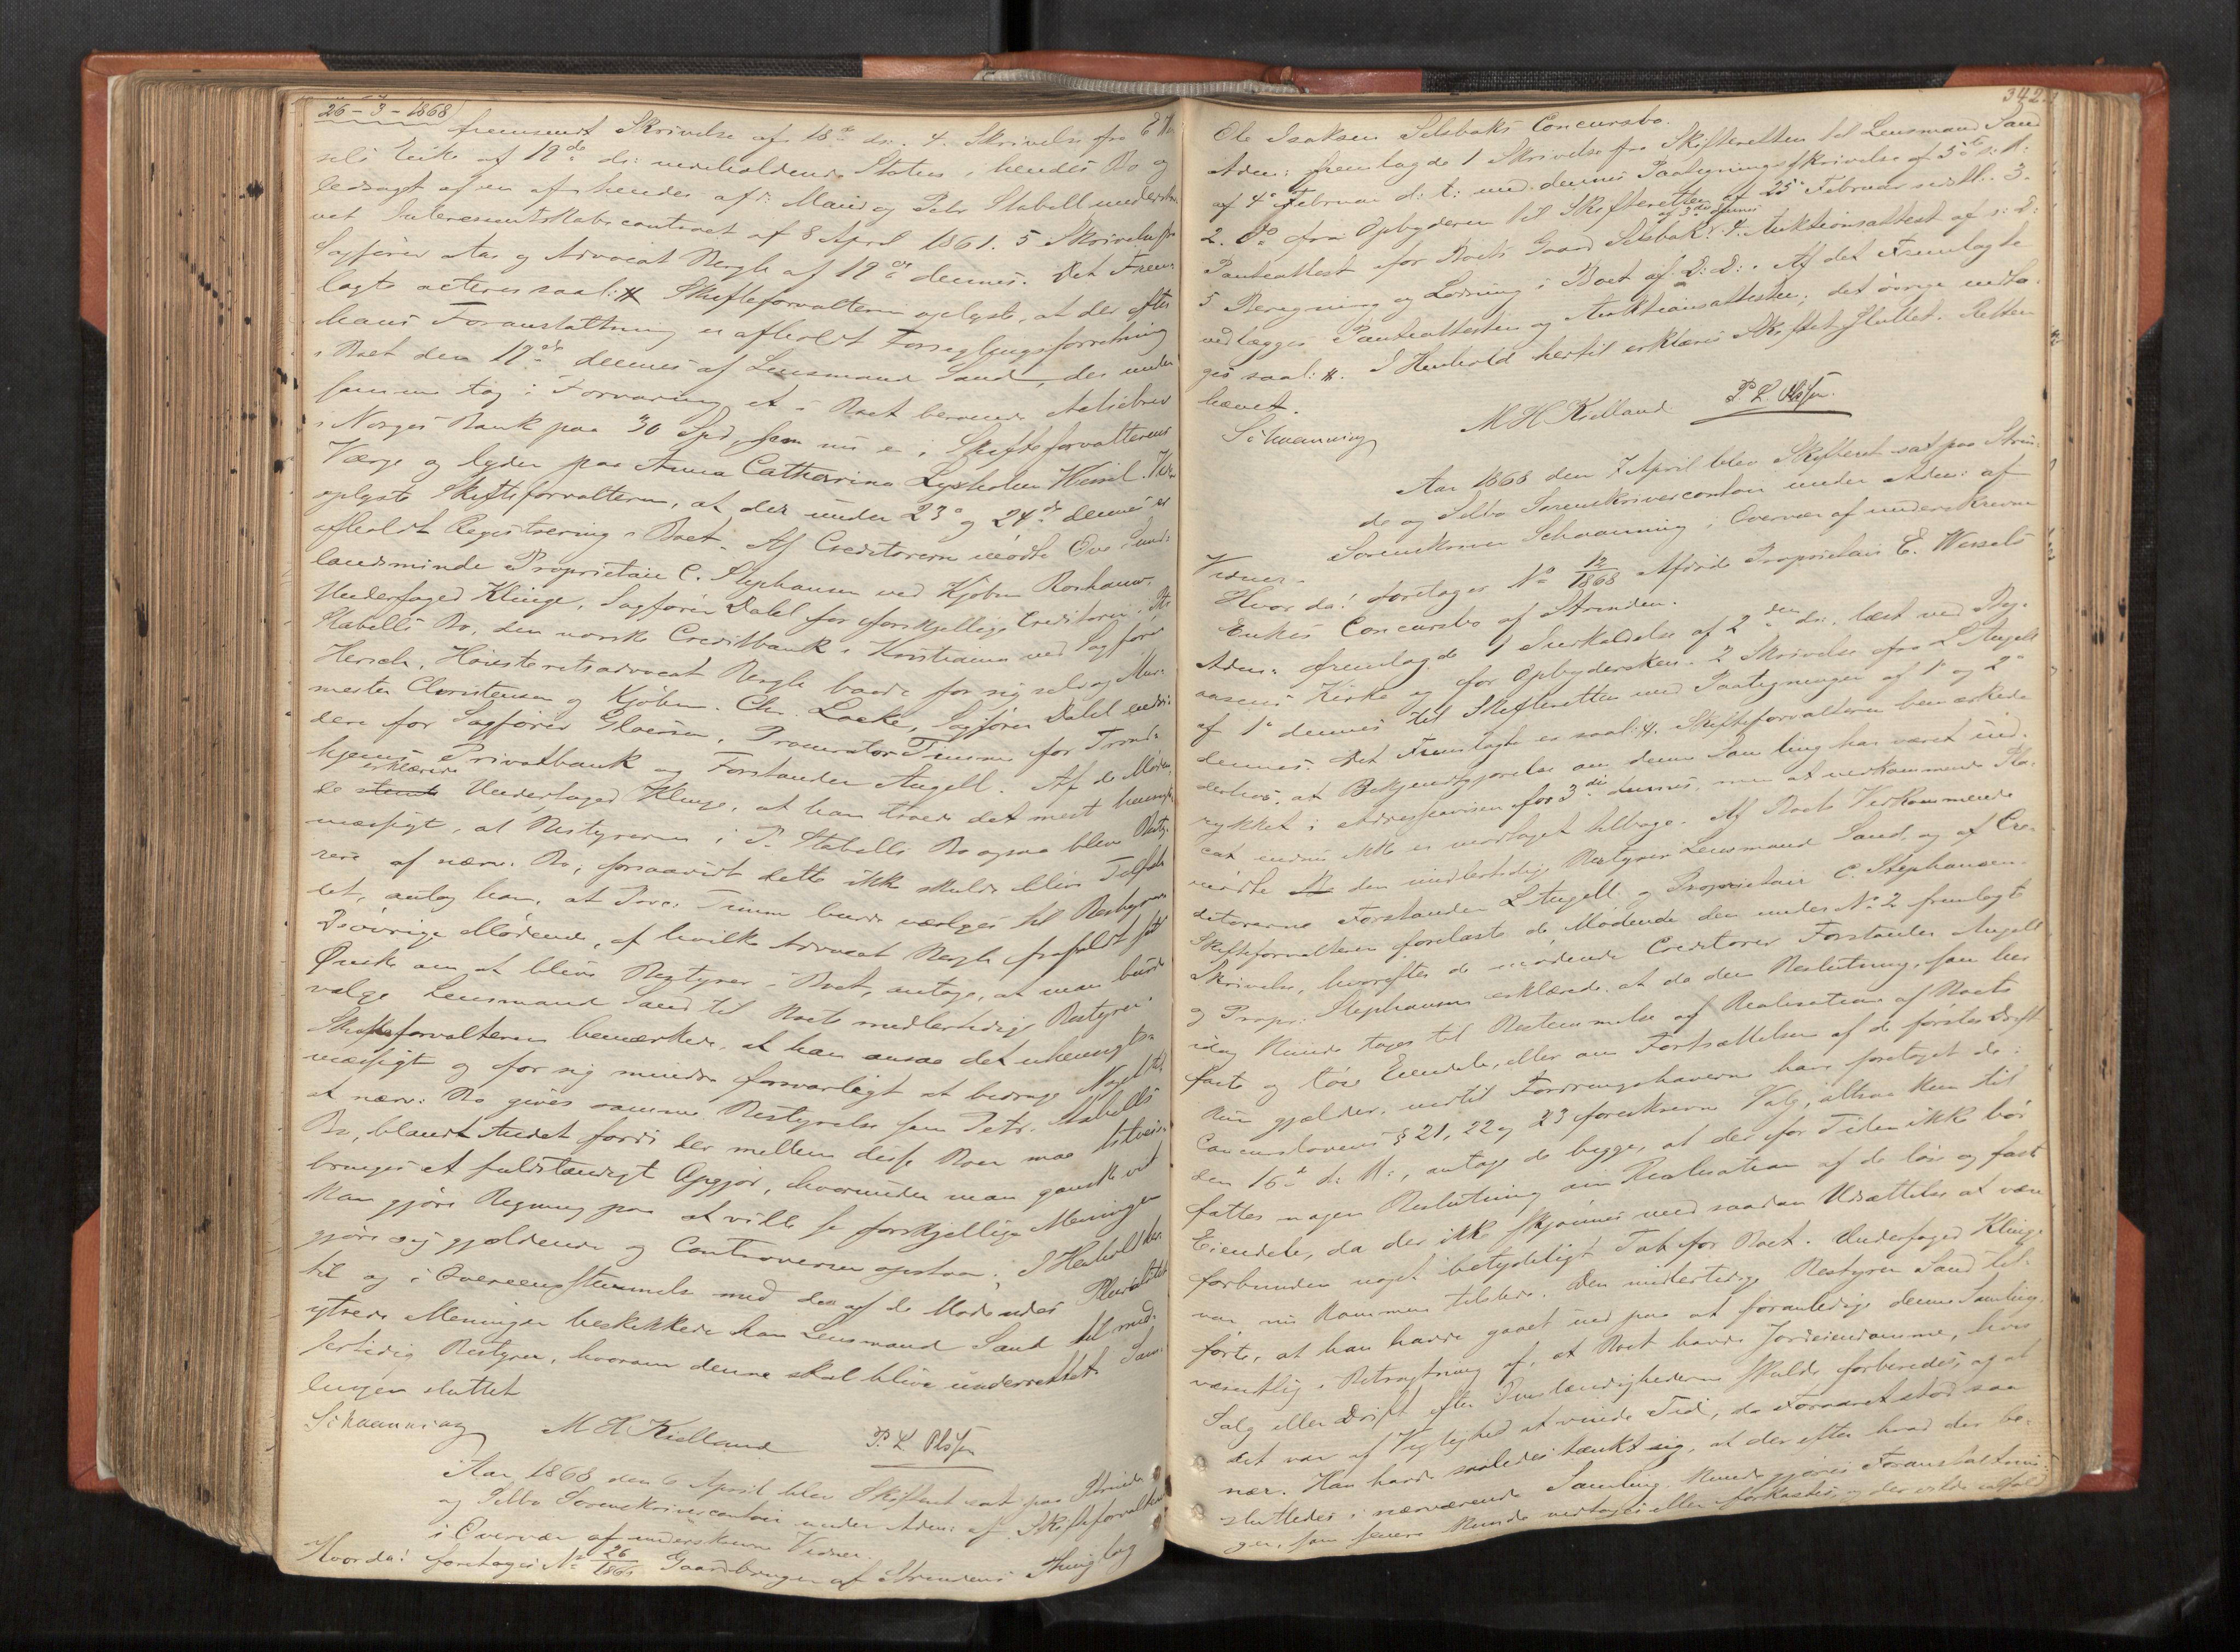 26-3-1868
fremsendt Skrivelse af 18de ds. 4. Skrivelse fra E We
sels Enke af 19de ds: indeholdende Status i hendes Bo og
ledsaget af en af hendes afd: Mand og Petr Stabell underskre
vet Interessentskabscontract af 8 April 1861. 5 Skrivelse fra
Sagfører Aas og Advocat Bergh af 19de dennes. Det Frem-
lagte acteres saal: # Skifteforvalteren oplyste, at der efter
hans Foranstaltning er afholdt Forseglingsforretning
i Boet den 19de dennes af Lensmand Sand, der under
samme tog i Forvaring et i Boet beroende Actiebrev
i Norges Bank paa 30 Spd, som nu er i Skifteforvalterens
Værge og lyder paa Anna Catharina Lysholm Wessel.
oplyste Skifteforvalteren, at der under 23de og 24de dennes er
afholdt Registrering i Boet. Af Creditorerne mødte Ove
landsminde Proprietair C. Stephansen ved Kjøbm
Underfoged Klinge, Sagfører Dahl for forskjellige Creditorer i P.
Stabells Bo, den norske Creditbank i Kristiania ved Sagfører
Hersch, Høiesteretsadvocat Bergh baade for sig selv og Mur-
mester Christensen og Kjøbm. Chr. Locke, Sagfører Dahl endvi-
dere for Sagfører Gløersen, Procurator Timme for Trond-
hjems Privatbank og Forstander Angell. Af de Møden-
de erklærede Underfoged Klinge, at han troede det mest hensigts
mæssigt, at Bestyrerne i P. Stabells Bo ogsaa blev Besty-
rere af nærv. Bo; forsaavidt dette ikke skulde blive Tilfæl-
det, antog han, at Proc. Timme burde vælges til Bestyrer
De øvrige Mødende, af hvilke Advocat Bergh frafaldt sit
Ønske om at blive Bestyrer i Boet, antage, at man burde
vælge Lensmand Sand til Boets midlertidige Bestyrer.
Skifteforvalteren bemærkede, at han ansaa det uhensigts-
mæssigt og for sig mindre forsvarligt at bidrage Noget til
at nærv: Bo gives samme Bestyrelse som Petr. Stabells
Bo, blandt Andet fordi der mellem disse Boer maa tilveie-
bringes et fuldstændigt Opgjør, hvorunder man ganske vist
kan gjøre Regning paa at ville se forskjellige Meninger
gjøre sig gjældende og Controverser opstaa; I Henhold her-
til og i Overeensstemmelse med den af de Mødendes Pluralitet
ytrede Meninger beskikkede han Lensmand Sand til mid-
lertidig Bestyrer, hvorom denne skal blive underrettet. Sam-
lingen sluttet
Schaanning M H Kielland P. L Olsen
Aar 1868 den 6 April blev Skifteret sat paa Strinde
og Selbo Sorenskrivercontoir under Adm: af Skifteforvalteren
i Overvær af underskrevne Vidner.
Hvor da: foretages No 26/186 Gaardbruger af Strindens Thinglag
342
Ole Isaksen Selsbaks Concursbo.
Adm: fremlagde 1 Skrivelse fra Skifteretten til Lensmand Sand
af 4de Februar d: A: med dennes Paategningsskrivelse af 5te s: M:
2. Do fra Opbyderen til Skifteretten af 25de Februar sidstl. 3.
Panteattest for Boets Gaard Selsbak af 3die dennes. 4. Auktionsattest af s: D:
5 Beregning og Lodning i Boet af D: D:. Af det Fremlagte
vedlægges Panteattesten og Auktionsattesten; det øvrige indta-
ges saal: #. I Henhold hertil erklæres Skiftet sluttet. Retten
hævet.
Schaanning M H Kielland P. L Olsen.
Aar 1868 den 7 April blev Skifteret sat paa Strin-
de og Selbo Sorenskrivercontoir under Adm: af
Sorenskriver Schaanning i Overvær af underskrevne
Vidner.
Hvor da: foretages No 12/1868 Afdøde Proprietair E. Wessels
Enkes Concursbo af Strinden.
Adm: fremlagde 1 Indkaldelse af 2den ds. læst ved By-
aasens Kirke og for Opbydersken. 2 Skrivelse fra L Angell
af 1ste dennes til Skifteretten med Paategninger af 1ste og 2den
dennes. Det Fremlagte er saal: #. Skifteforvalteren bemærkede
derhos, at Bekjendtgjørelse om denne Samling har været ind-
rykket i Adresseavisen for 3die dennes, men at vedkommende Pla-
cat endnu ikke er modtaget tilbage. Af Boets Vedkommende
mødte den midlertidige Bestyrer Lensmand Sand, og af Cre-
ditorerne Forstander L Angell og Proprietair C. Stephansen.
Skifteforvalteren forelæste de Mødende den under No 2 fremlagte
Skrivelse, hvorefter de mødende Creditorer Forstander Angell
og Propr. Stephansen erklærede, at da den Beslutning, som her
idag kunde tages til Bestemmelse af Realisation af Boets
faste og løse Eiendele, eller om Fortsættelsen af de førstes Drift
kun gjælder, indtil Fordringshaverne have foretaget de i
Concurslovens § 21, 22 og 23 foreskrevne Valg, altsaa kun til
den 16de d: M:, antage de begge, at der for Tiden ikke bør
fattes nogen Beslutning om Realisation af de løse og faste
Eiendele, da der ikke skjønnes med saadan Udsættelse at være
forbunden noget betydeligt Tab for Boet. Underfoged Klinge
var nu kommen tilstede. Den midlertidige Bestyrer Sand til-
førte, at han havde gaaet ind paa at foranledige denne Samling
væsentlig i Betragtning af, at Boet havde Jordeiendomme, hvis
Salg eller Drift efter Omstændighederne skulde forberedes, og at
det var af Vigtighed at vinde Tid, da Foraaret stod saa
nær. Han havde saaledes tænkt sig, at der efter hvad der be-
sluttedes i nærværende Samling kunde gjøres Foranstaltnin-
ger, som senere kunde vedtages eller forkastes, og der vilde isaafald